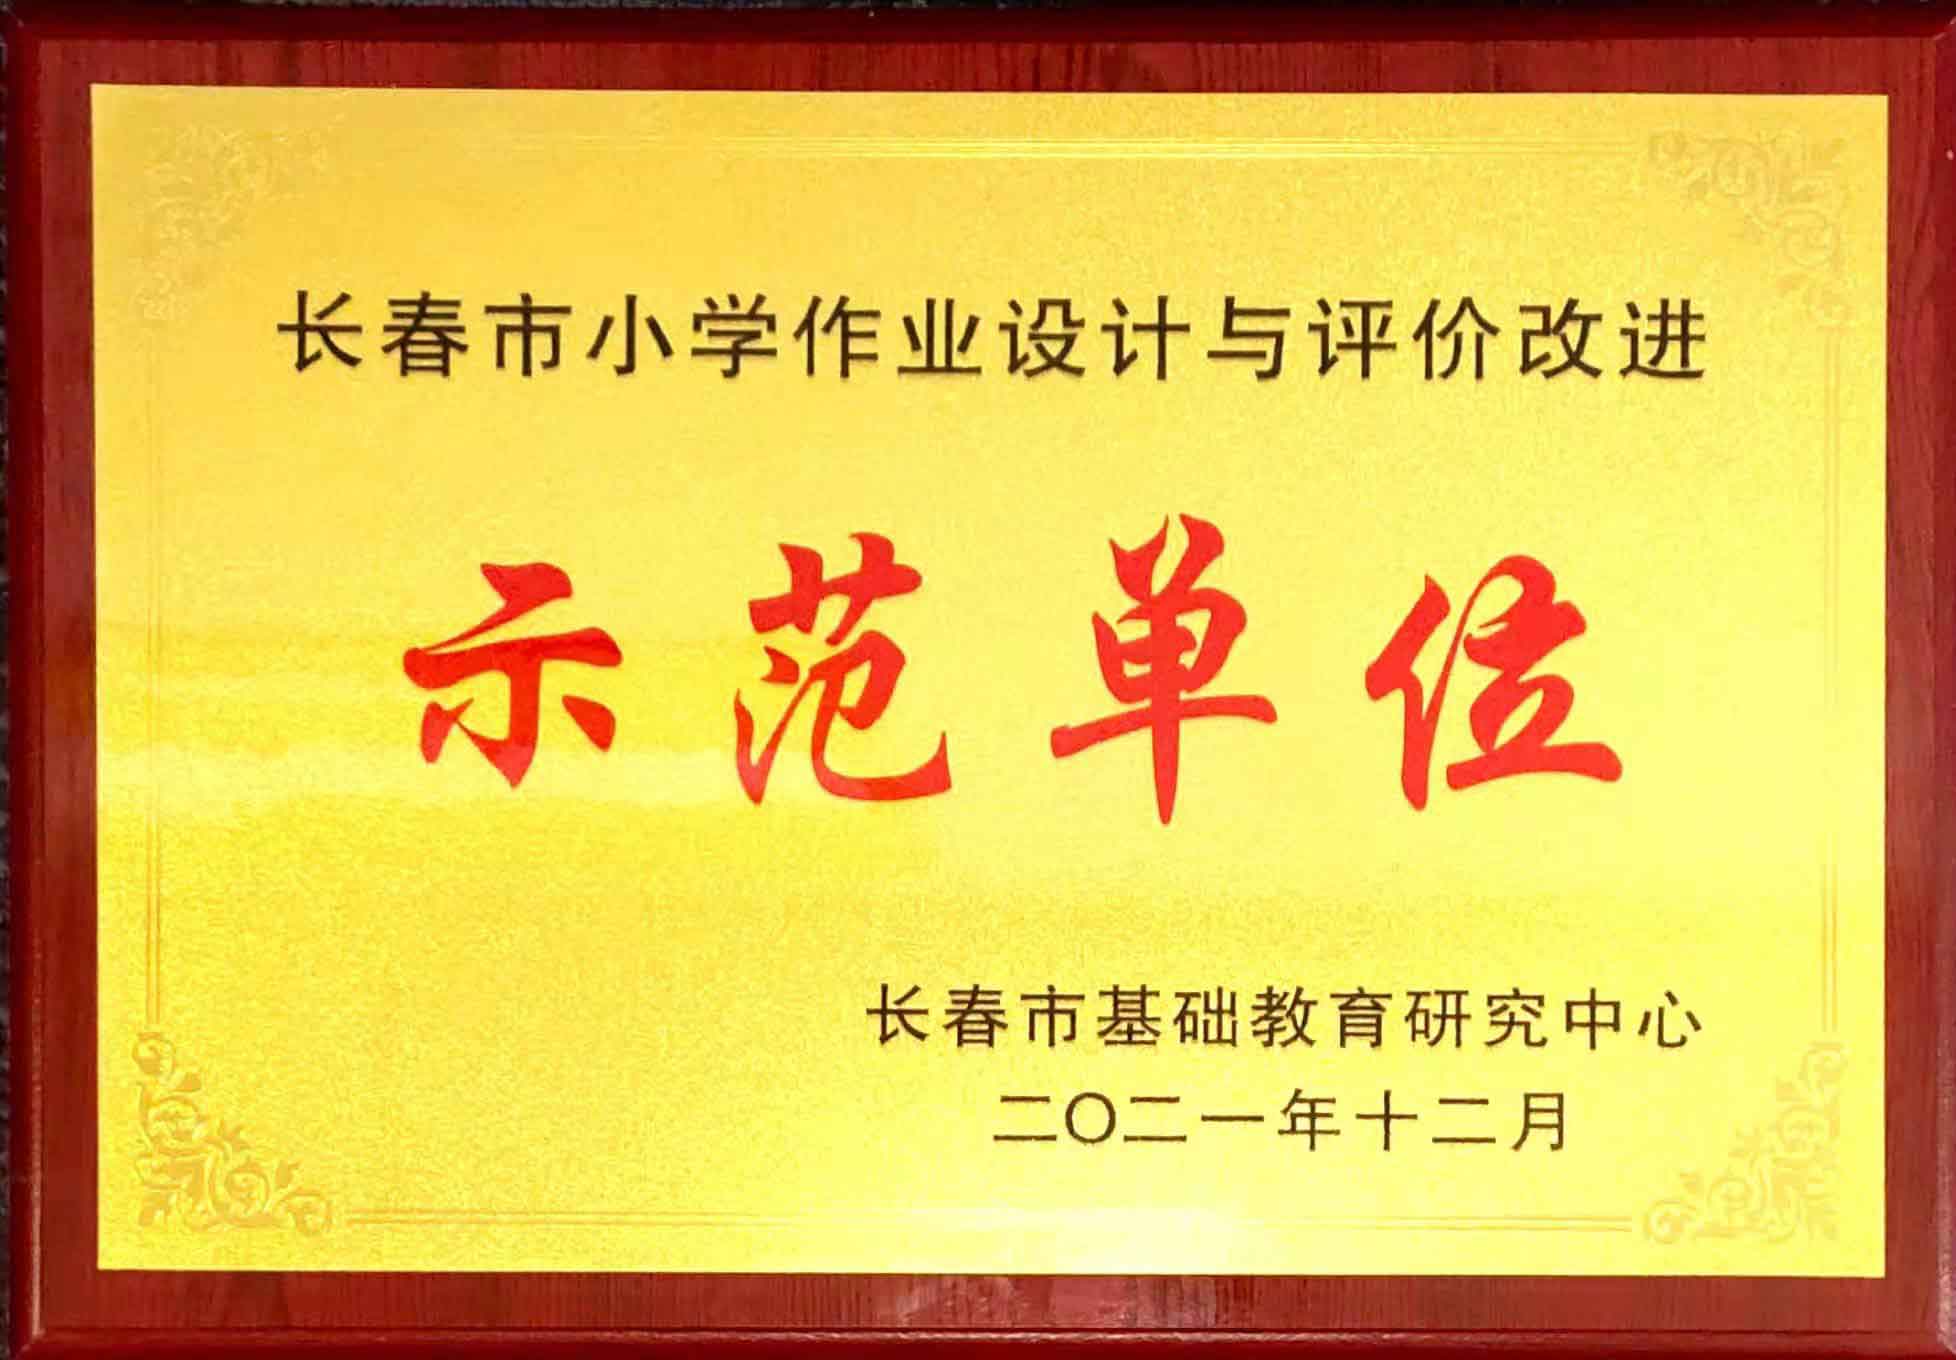 长春市小学作业设计与评价改进
示范单位
长春市基础教育研究中心
二〇二一年十二月